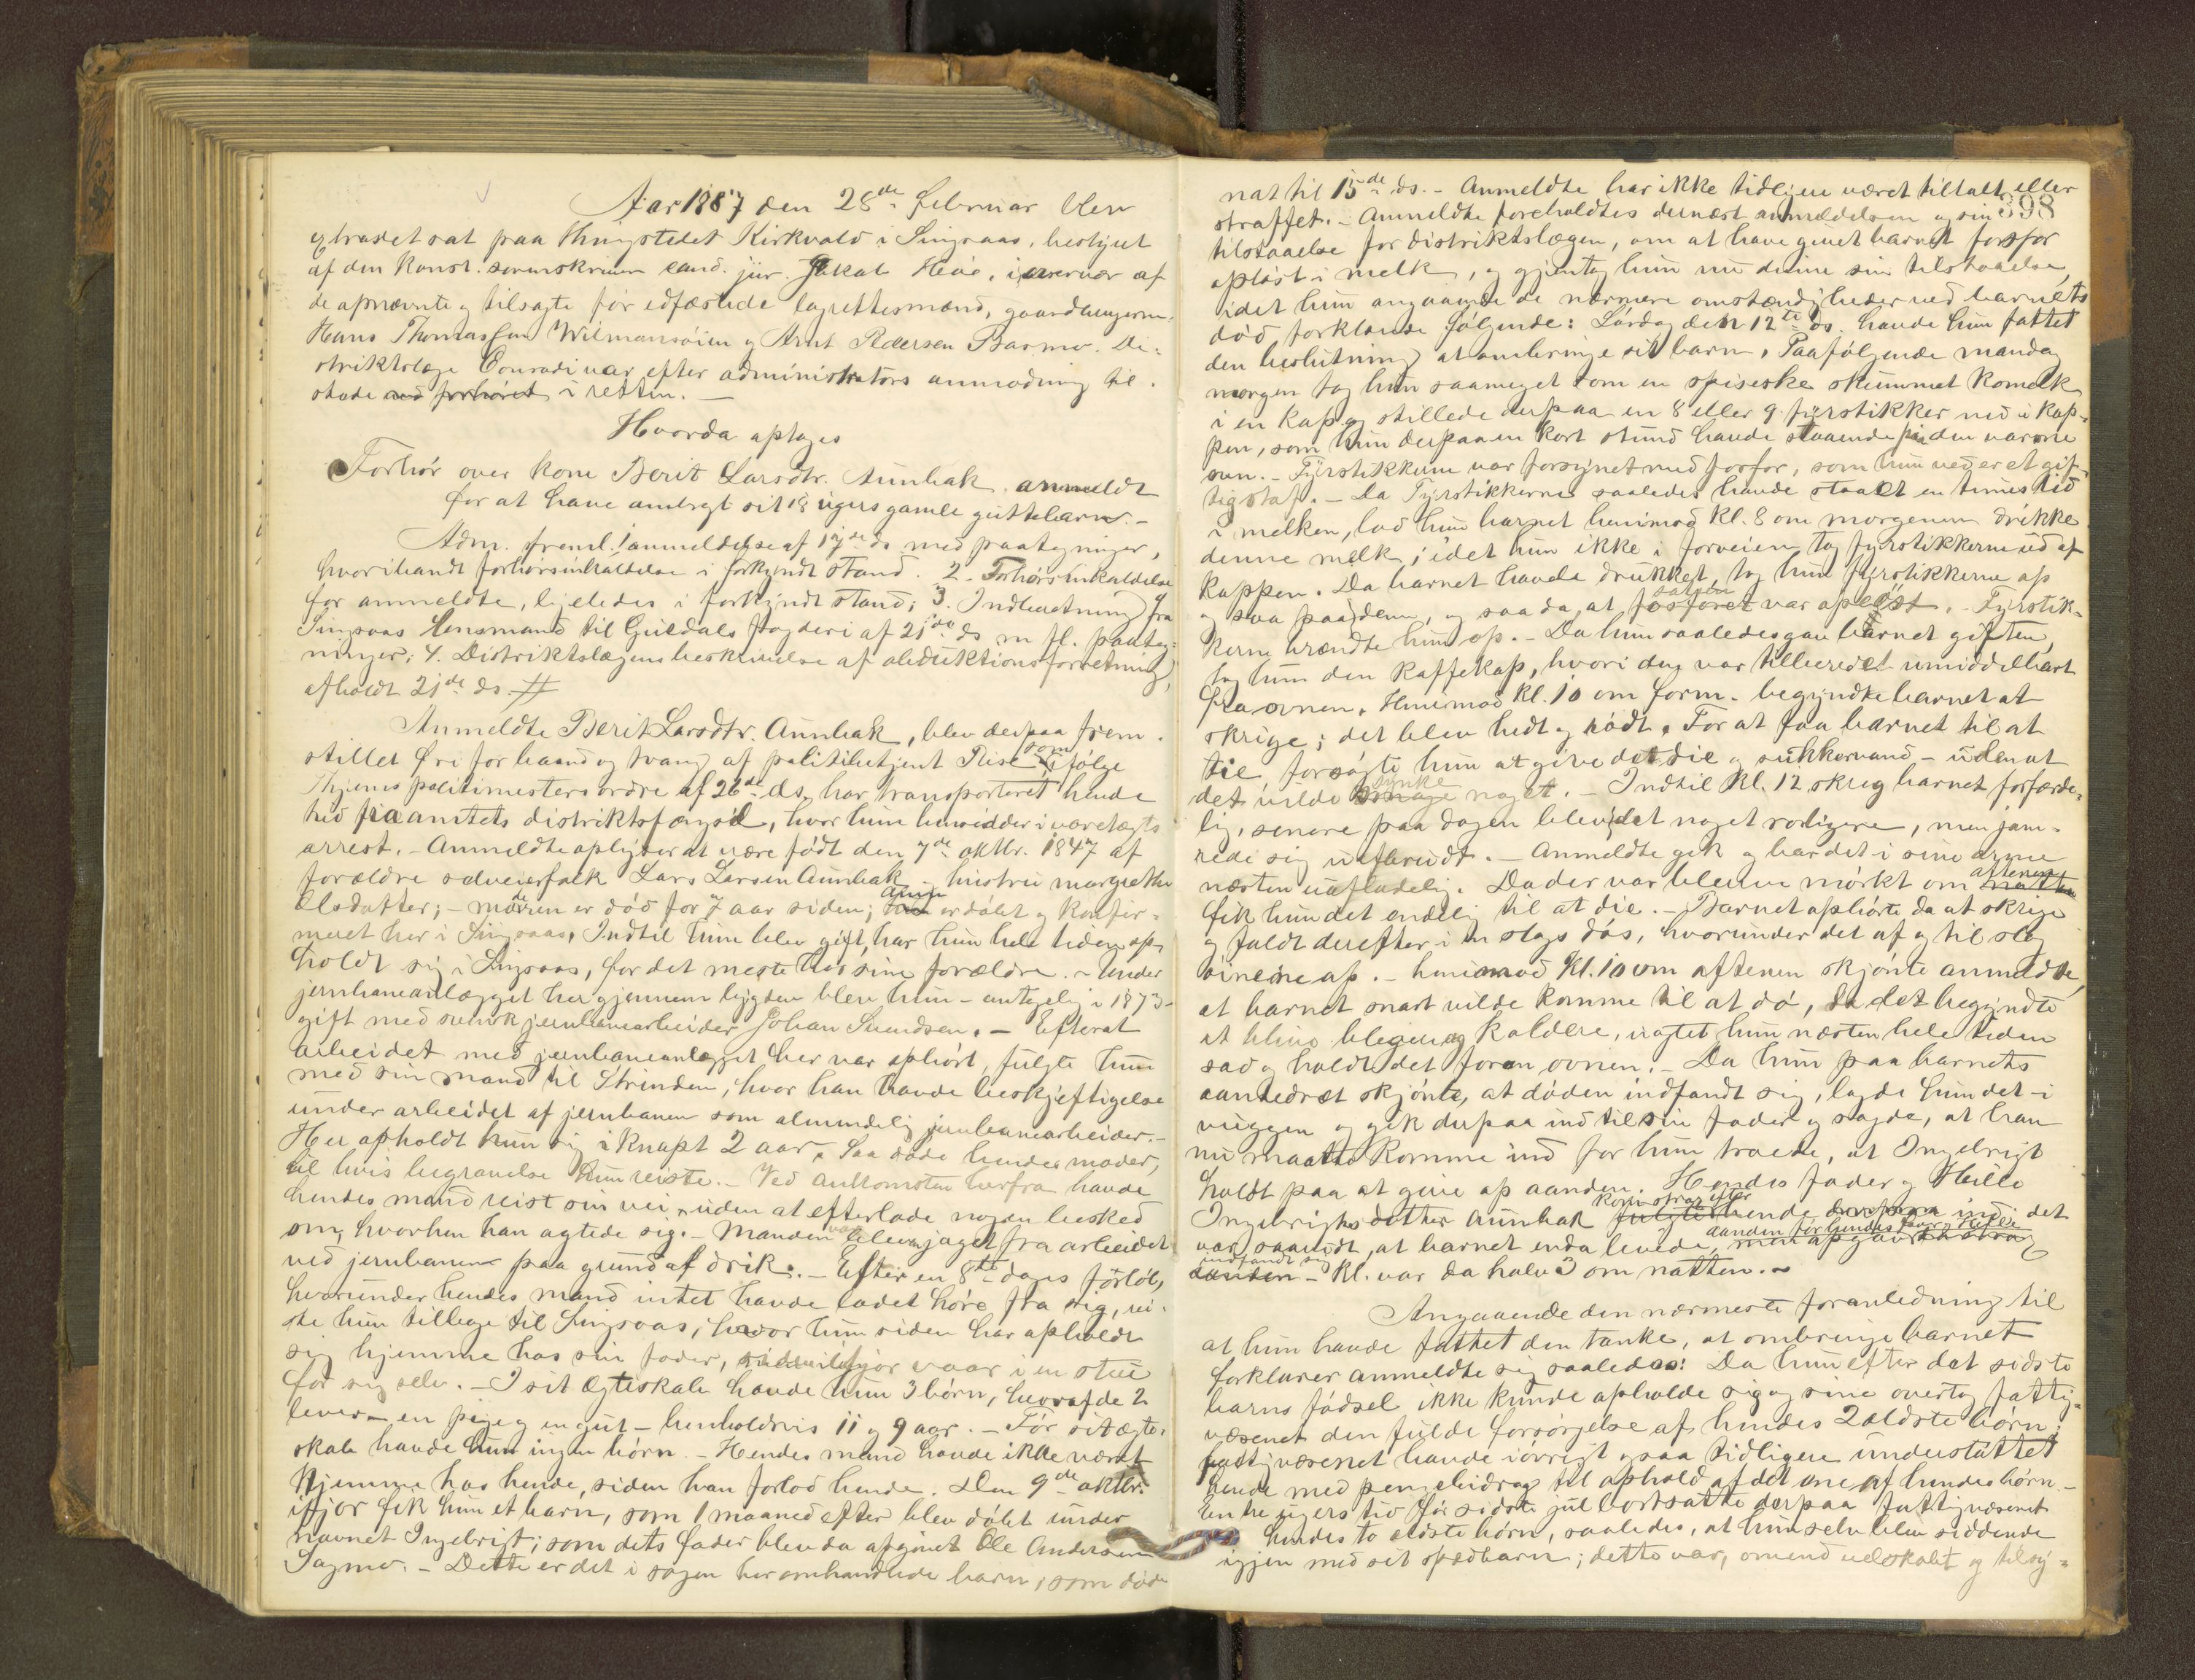 Aar 1887 den 28de februar blev
extraret sat paa thingstedet Kirkvold i Singsaas, bestyret
af den konst. sorenskriver cand. jur. Jakob Høe, i overvær af
de opnævnte og tilsagte før edfæstede lagrettesmænd, gaardbrugerne
Hans Thomassen Wilmansøien og Arnt Pedersen Barmo. Di-
striktslæge Conradi var efter administrators anmodning til-
stede ved forhøret i retten. —
Hvorda optoges
Forhør over kone Berit Larsdtr. Aunbak anmeldt
for at have ombragt sit 18 ugers gamle guttebarn. —
Adm. freml. 1 anmeldelse af 17de ds med paategninger,
hvoriblandt forhørsinkaldelse i forkyndt stand. 2. Forhørsinkaldelse
for anmeldte, ligeledes i forkyndt stand; 3. Indberetning fra
Singsaas lensmand til Guldals fogderi af 21de ds m fl. paateg-
ninger; 4. Distriktslægens beskrivelse af obduktionsforretning,
afholdt 21de ds. #
Anmeldte Berit Larsdtr. Aunbak, blev derpaa frem-
stillet fri for baand og tvang af politibetjent Riise som ifølge
Thjems politimesters ordre af 26de ds, har transporteret hende
hid fra amtets distriktsfængsel, hvor hun hensidder i varetægts
arrest. — Anmeldte oplyser at være født den 7de oktbr. 1847 af
forældre selveierfolk Lars Larsen Aunbak og hustru Margrethe
Olsdatter; — moderen er død for 7 aar siden; hun er døbt og konfir-
meret her i Singsaas, Indtil hun blev gift, har hun hele tiden op-
holdt sig i Singsaas, for det meste hos sine forældre. — Under
jernbaneanlægget her gjennem bygden blev hun — antagelig i 1873 —
gift med svensk jernbanearbeider Johan Svendsen. — Efterat
arbeidet med jernbaneanlægget her var ophørt, fulgte hun
med sin mand til Strinden, hvor han havde beskjeftigelse
under arbeidet af jernbanen som almindelig jernbanearbeider. —
Her opholdt hun sig i knapt 2 aar. Saa døde hendes moder,
til hvis begravelse hun reiste. — Ved ankomsten herfra havde
hendes mand reist sin vei, uden at efterlade nogen besked
om, hvorhen han agtede sig. — Manden var bleven jaget fra arbeidet
ved jernbanen paa grund af drik. — Efter en 8te dages forløb,
hvorunder hendes mand intet havde ladet høre fra sig, rei-
ste hun tilbage til Singsaas, hvor hun siden har opholdt
sig hjemme hos sin fader, ifjor vaar i en stue
for sig selv. — I sit ægteskab havde hun 3 børn, hvoraf de 2
lever — en pige og en gut — henholdsvis 11 og 9 aar. — Før sit ægte-
skab havde hun ingen børn. — Hendes mand havde ikke været
hjemme hos hende, siden han forlod hende. Den 9de oktbr.
ifjor fik hun et barn, som 1 maaned efter blev døbt under
navnet Ingebrigt; som dets fader blev da opgivet Ole Andersen
Sagmo. — Dette er det i sagen her omhandlede barn, som døde
398
nat til 15de ds. — Anmeldte har ikke tidligere været tiltalt eller
straffet. — Anmeldte foreholdtes dernæst anmeldelsen og sin
tilstaaelse for distriktslægen, om at have givet barnet fosfor
opløst i melk, og gjentog hun nu denne sin tilstaaelse,
idet hun angaaende de nærmere omstændigheder ved barnets
død forklarede følgende: Lørdag den 12te ds. havde hun fattet
den beslutning at ombringe sit barn. Paafølgende mandag
morgen tog hun saameget som en spiseske skummet komelk
i en kop og stillede derpaa en 8 eller 9 fyrstikker ned i kop-
pen, som hun derpaa en kort stund havde staaende paa den varme
ovn. — Fyrstikkerne var forsynet med fosfor, som hun ved er et gif-
tig stof. — Da fyrstikkerne saaledes havde staaet en times tid
i melken, lod hun barnet henimod kl. 8 om morgenen drikke
denne melk; idet hun ikke i forveien tog fyrstikkerne ud af
koppen. Da barnet havde drukket, tog hun fyrstikkerne op
og saa paa dem, og saa da, at satsen fosforet var opløst. — Fyrstik-
kerne brændte hun op. — Da hun saaledes gav barnet giften,
tog hun den kaffekop, hvori den var tilberedet umiddelbart
fra ovnen. Henimod kl. 10 om form. begyndte barnet at
skrige; det blev hedt og rødt. For at faa barnet til at
tie, forsøgte hun at give det die og sukkervand — uden at
det vilde synke smage noget. — Indtil kl. 12 skreg barnet forfærde-
lig, senere paa dagen blev det noget roligere, men jam-
rede sig uafbrudt. — Anmeldte gik og bar det i sine arme
næsten uafladelig. Da der var bleven mørkt om aftenen natten
fik hun det endelig til at die. — Barnet ophørte da at skrige
og faldt derefter i en slags døs, hvorunder det af og til slog
øinene op. — Henimod kl. 10 om aftenen skjønte anmeldte,
at barnet snart vilde komme til at dø, da det begyndte
at blive blegere og koldere, uagtet hun næsten hele tiden
sad og holdt det foran ovnen. — Da hun paa barnets
aandedræt skjønte, at døden indfandt sig, lagde hun det i
vuggen og gik derpaa ind til sin fader og sagde, at han
nu maatte komme ind for hun troede, at Ingebrigt
holdt paa at give op aanden. Hendes fader og Hille
Ingebrigtsdatter Aunbak kom strax efter fulgte hende derpaa ind; det
var saavidt, at barnet enda levede, aanden før hendes fader og Hille men opgav straks
indfandt sig aanden — Kl. var da halv 3 om natten. —
Angaaende den nærmeste foranledning til
at hun havde fattet den tanke, at ombringe barnet
forklarer anmeldte sig saaledes: Da hun efter det sidste
barns fødsel ikke kunde opholde sig og sine overtog fattig-
væsenet den fulde forsørgelse af hendes 2 ældste børn;
fattigvæsenet havde iøvrigt ogsaa tidligere understøttet
hende med pengebidrag til ophold af det ene af hendes børn. —
En tre ugers tid før sidste jul bortsatte derpaa fattigvæsenet
hendes to ældste børn, saaledes, at hun selv blev siddende
igjen med sit spædbarn; dette var, omend velskabt og tilsy-